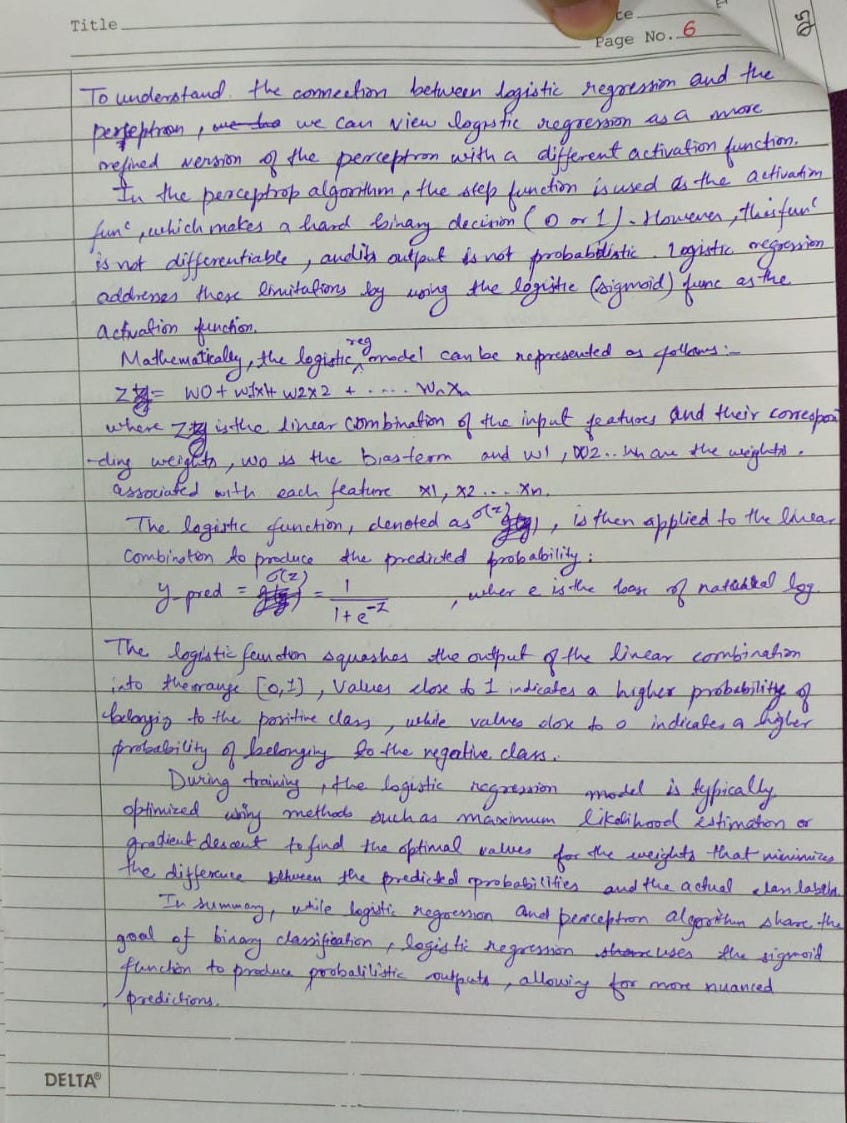 Title
te
Page No. 6
To understand the connection between logistic regression and the
perfeptron, we can view logistic regression as a more
refined version of the perceptron with a different activation function.
In the perceptrop algorithm, the step function is used as the activation
funᶜ, which makes a hard binary decision (0 or 1). However, this funᶜ
is not differentiable, and its output is not probabilistic. Logistic regression
addresses these limitations by using the logistic (sigmoid) func as the
activation function.
Mathematically, the logistic reg model can be represented as follows:-
Z = W0 + W1x1 + W2x2 + ..... WnXn
where Z is the linear combination of the input features and their correspon
-ding weights, W0 is the bias term and W1, W2.. Wn are the weights.
associated with each feature x1, x2 .... Xn.
The logistic function, denoted as σ(z), is then applied to the linear
combination to produce the predicted probability:
y-pred = σ(z) = 1 / 1 + e^-Z , wher e is the base of natural log.
The logistic function squashes the output of the linear combination
into the range [0,1], Values close to 1 indicates a higher probability of
belongig to the positive class, while values close to 0 indicates a higher
probability of belonging to the negative class.
During training, the logistic regression model is typically
optimized using methods such as maximum likelihood estimation or
gradient descent to find the optimal values for the weights that minimizes
the difference between the predicted probabilities and the actual class labels.
In summary, while logistic regression and perceptron algorithm share the
goal of binary classification, logistic regression uses the sigmoid
function to produce probalilistic outputs, allowing for more nuanced
predictions.
DELTA®